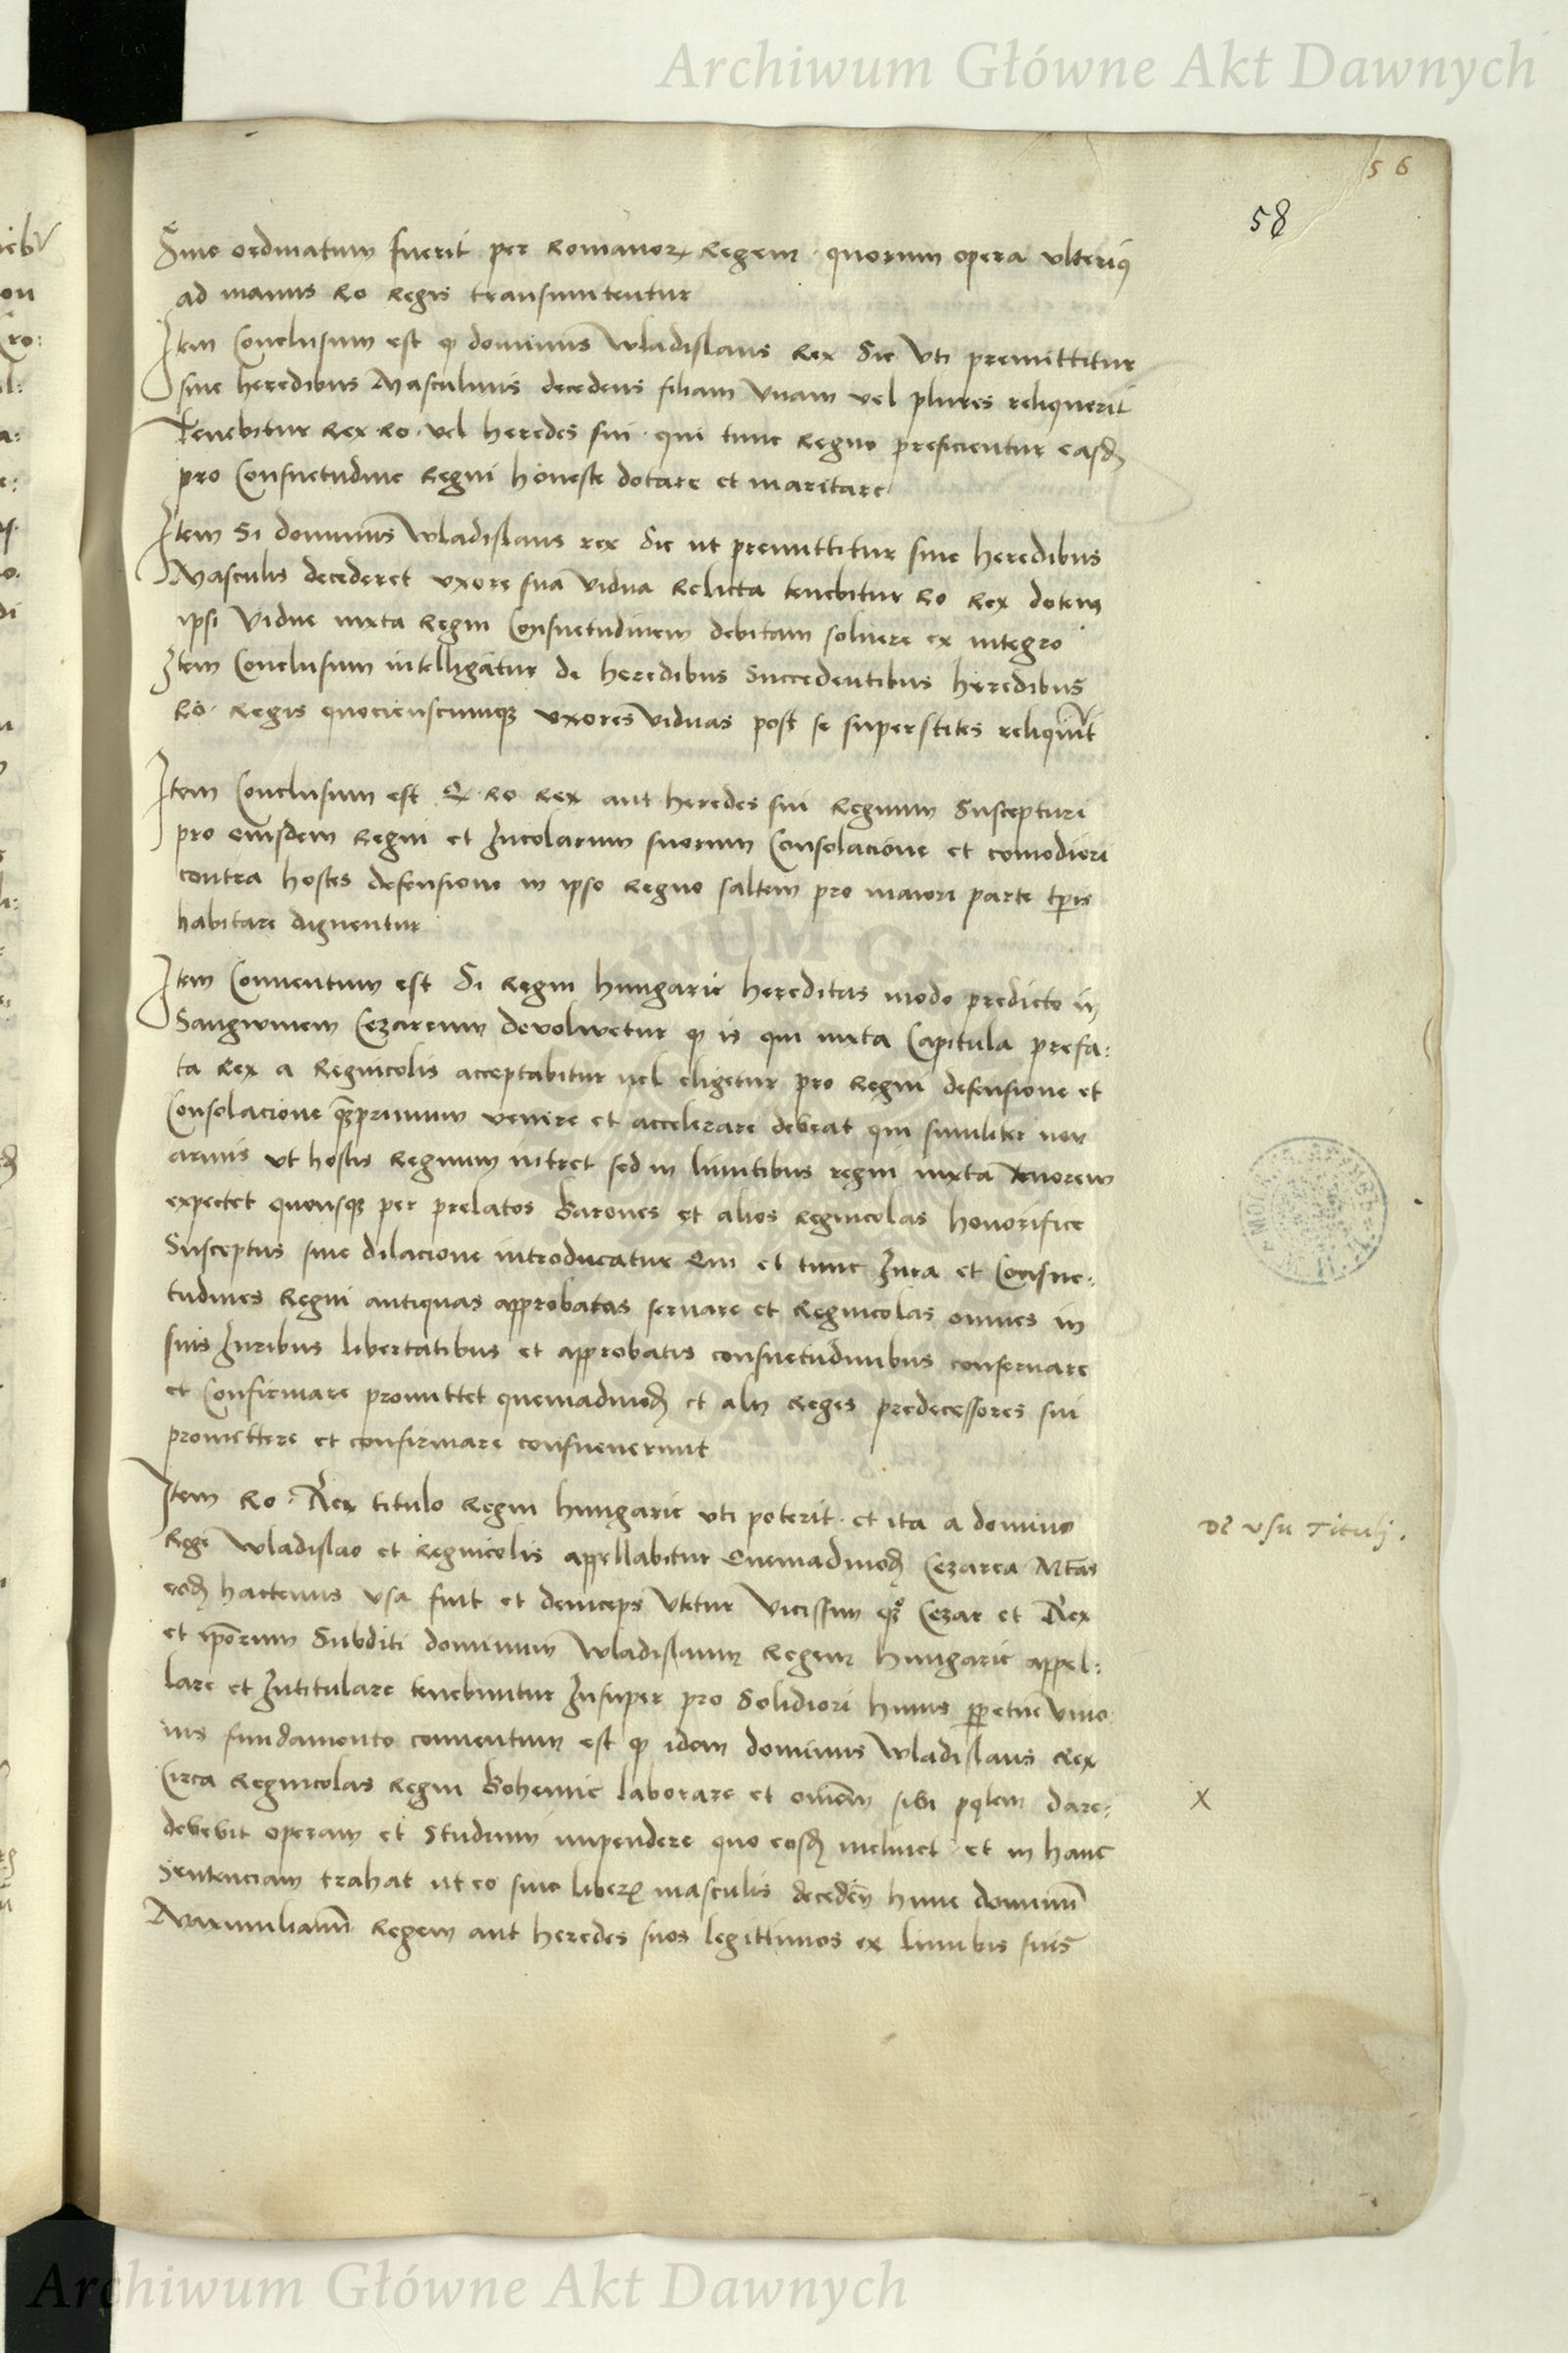 Archiwum Główne Akt Dawnych
56
58
Sive ordinatum fuerit per Romanor Regem quorum opera ulteriq
ad manus Ro Regis transmittentur
Item Conclusum est q dominus Wladislaus Rex Sic Uti premittitur
sine heredibus Masculinis decedens filiam Unam vel plures reliquerit
Tenebitur Rex Ro vel heredes sui qui tunc Regno preficientur easd
pro Consuetudine Regni honeste dotare et maritare
Item Si dominus Wladislaus rex Sic ut premittitur sine heredibus
Masculis decederet uxore sua Vidua Relicta tenebitur Ro Rex dotem
ipsi Vidue iuxta Regni Consuetudinem debitam solvere ex integro
Item Conclusum intelligatur de heredibus Succedentibus heredibus
Ro Regis quocienscumq uxores Viduas post se superstites reliquint
Item Conclusum est Q Ro Rex aut heredes sui Regnum Suscepturi
pro eiusdem Regni et Incolarum suorum Consolacione et comodiori
contra hostes defensione in ipso Regno saltem pro maiori parte tpis
habitare dignentur
Item Conventum est Si Regni hungarie hereditas modo predicto in
Sangwinem Cezareum devolwetur q is qui iuxta Capitula prefa:
ta Rex a Regnicolis acceptabitur vel eligetur pro Regni defensione et
Consolacione qprimum venire et accelerare debeat qui similiter non
armis ut hostis Regnum intret sed in limitibus regni iuxta tenorem
expectet quousq per prelatos Barones et alios Regnicolas honorifice
Susceptus sine dilacione introducatur Qui et tunc Jura et Consue:
tudines Regni antiquas approbatas servare et Regnicolas omnes in
suis Juribus libertatibus et approbatis consuetudinibus conservare
et Confirmare promittet quemadmod et alii Reges predecessores sui
promittere et confirmare consueverunt
Item Ro. Rex titulo Regni hungarie uti poterit et ita a domino
Rege Wladislao et Regnicolis appellabitur Quemadmod Cezarea Mtas
eod hactenus usa fuit et deinceps Utetur Vicissim q Cezar et Rex
et iporum Subditi dominum Wladislaum Regem Hungarie appel:
lare et Intitulare tenebuntur Insuper pro Solidiori huius ppetue Unio
nis fundamento conventum est q idem dominus Wladislaus Rex
Circa Regnicolas Regni Bohemie laborare et omem sibi pqlem dare:
debebit operam et Studium impendere quo eosd inclinet et in hanc
Sentenciam trahat ut eo sine liber masculis deceden hunc dominu
Maximilianu Regem aut heredes suos legittimos ex limbis suis
De usu Tituli.
X
Archiwum Główne Akt Dawnych